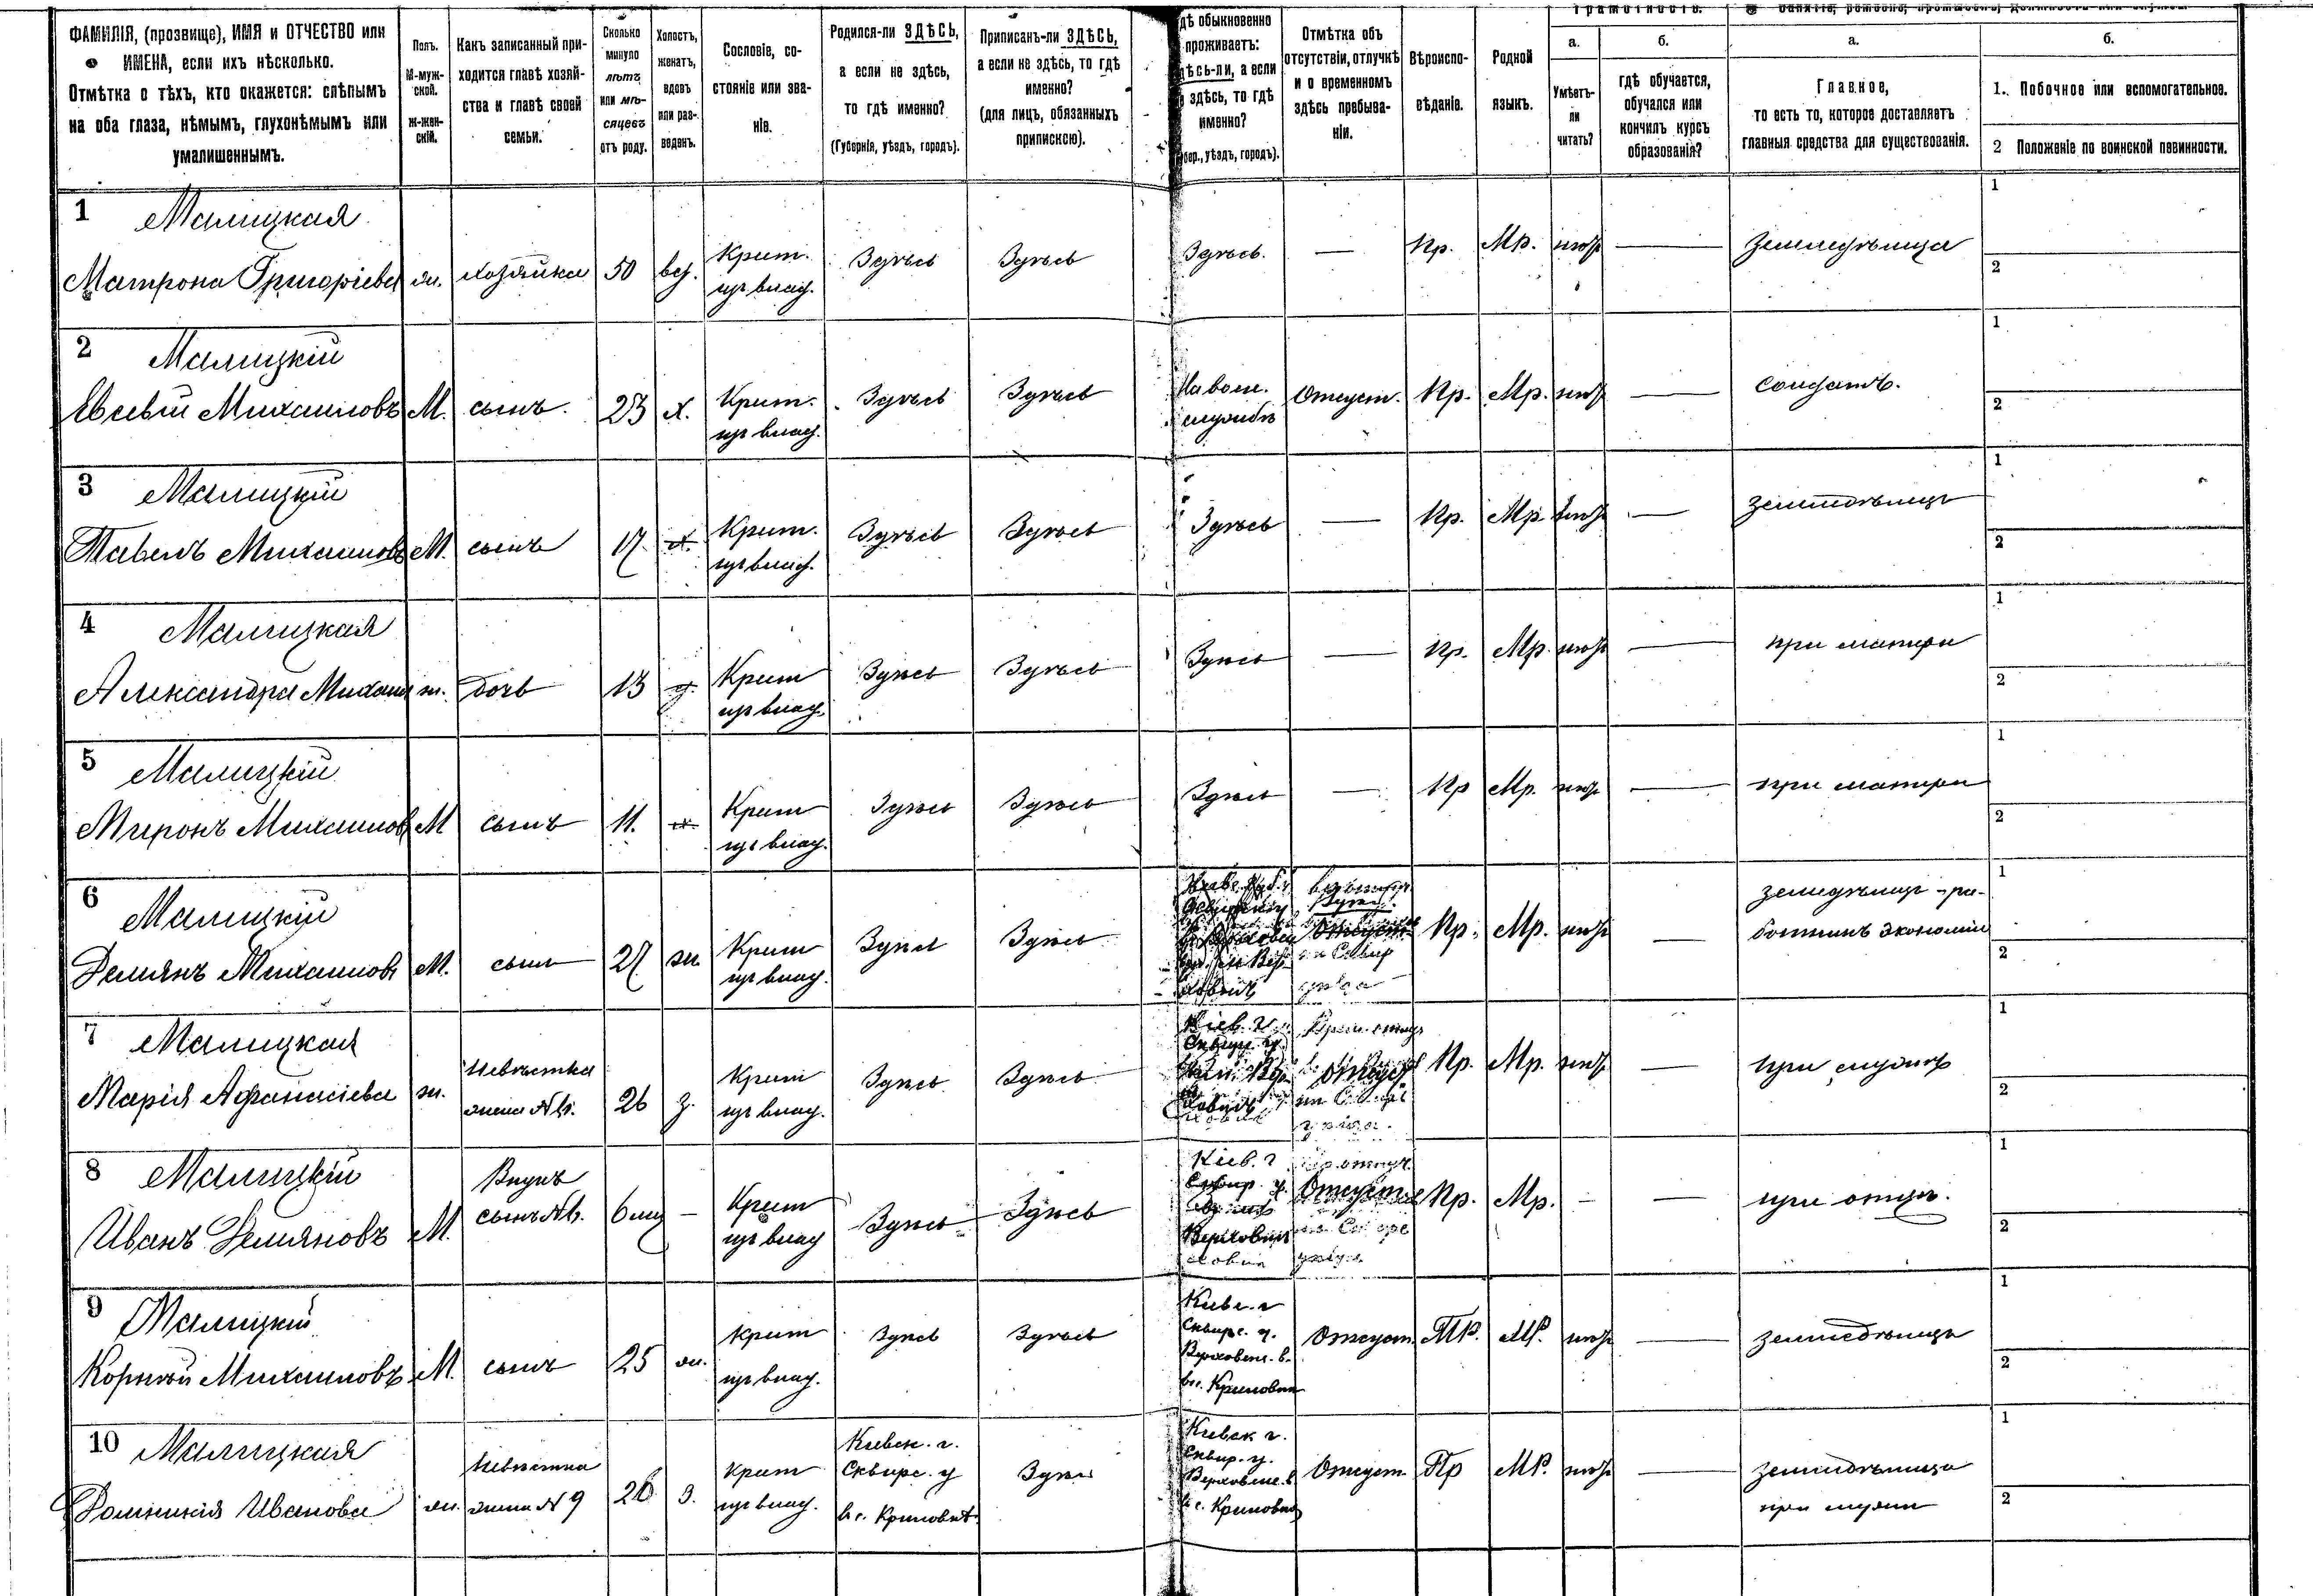 ФАМИЛІЯ, (прозвище), ИМЯ и ОТЧЕСТВО или
ИМЕНА, если ихъ нѣсколько.
Отмѣтка о тѣхъ, кто окажется: слѣпымъ
на оба глаза, нѣмымъ, глухонѣмымъ или
умалишеннымъ.
Полъ.
М-муж-
ской.
ж-жен-
скій.
Какъ записанный при-
ходится главѣ хозяй-
ства и главѣ своей
семьи.
Сколько
минуло
лѣтъ
или мѣ-
сяцевъ
отъ роду.
Холостъ,
женатъ,
вдовъ
или раз-
веденъ.
Сословіе, со-
стояніе или зва-
ніе.
Родился-ли ЗДѢСЬ,
а если не здѣсь,
то гдѣ именно?
(Губернія, уѣздъ, городъ).
Приписанъ-ли ЗДѢСЬ,
а если не здѣсь, то гдѣ
именно?
(для лицъ, обязанныхъ
припискою).
дѣ обыкновенно
проживаетъ:
дѣсь-ли, а если
здѣсь, то гдѣ
именно?
бер., уѣздъ, городъ).
Отмѣтка объ
отсутствіи, отлучкѣ
и о временномъ
здѣсь пребыва-
ніи.
Вѣроиспо-
вѣданіе.
Родной
языкъ.
Грамотность.
а.
Умѣетъ-
ли
читать?
б.
гдѣ обучается,
обучался или
кончилъ курсъ
образованія?
Занятіе, ремесло, промыселъ, должность или служба
а.
Главное,
то есть то, которое доставляетъ
главныя средства для существованія.
б.
1. Побочное или вспомогательное.
2 Положеніе по воинской повинности.
1 Малицкая
Матрона Григорієва ж. хозяйка 50 вд. Крест. изъ влад. Здѣсь Здѣсь Здѣсь. — Пр. Мр. нѣтъ — земледѣлица 1 2
2 Малицкій
Евсевій Михаиловъ М. сынъ. 23 х. Крест. изъ влад. Здѣсь Здѣсь На воен. службѣ Отсутст. Пр. Мр. нѣтъ — солдатъ. 1 2
3 Малицкій
Павелъ Михаиловъ М. сынъ 17 х. Крест. изъ влад. Здѣсь Здѣсь Здѣсь — Пр. Мр. нѣтъ — земледѣлецъ 1 2
4 Малицкая
Александра Михаил ж. дочь 13 д. Крест изъ влад. Здѣсь Здѣсь Здѣсь — Пр. Мр. нѣтъ — при матери 1 2
5 Малицкій
Миронъ Михаиловъ М сынъ 11. х. Крест изъ влад. Здѣсь Здѣсь Здѣсь — Пр Мр. нѣтъ — при матери 1 2
6 Малицкій
Демянъ Михаиловъ М. сынъ 27 ж. Крест изъ влад. Здѣсь Здѣсь Пр. Мр. нѣтъ — земледѣлецъ - ра-
ботникъ экономіи 1 2
7 Малицкая
Марія Афанасіева ж. Невѣстка жена №6. 26 з. Крест изъ влад. Здѣсь Здѣсь Кіев. г. Пр. Мр. нѣтъ — при мужѣ 1 2
8 Малицкій
Иванъ Демяновъ М. Внукъ сынъ №6. 6 мц — Крест изъ влад Здѣсь Здѣсь Кіев. г Пр. Мр. — — при отцѣ. 1 2
9 Малицкій
Корнѣй Михаиловъ М. сынъ 25 ж. Крест изъ влад. Здѣсь Здѣсь Кіевс. г Сквирс. у. Отсутст. Пр. Мр. нѣтъ — земледѣлецъ 1 2
10 Малицкая
Домникія Иванова ж. Невѣстка жена №9 26 з. Крест изъ влад. Кіевск. г. Сквирс. у Здѣсь Кіевск г. Сквир. у. Отсутст. Пр Мр. нѣтъ — земледѣлица
при мужѣ 1 2